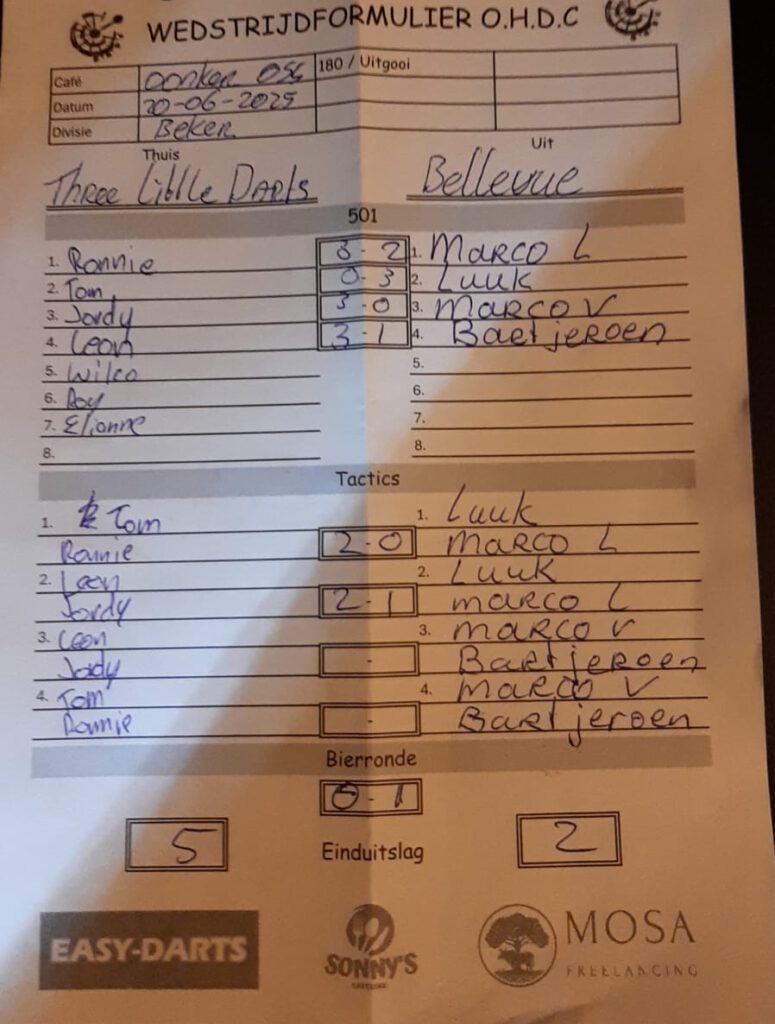 WEDSTRIJDFORMULIER O.H.D.C
Café Oonker Oss 180 / Uitgooi
Datum 20-06-2025
Divisie Beker
Thuis Uit
Three Little Darts Bellevue
501
1. Ronnie 3 - 2 1. Marco L
2. Tom 0 - 3 2. Luuk
3. Jordy 3 - 0 3. Marco V
4. Leon 3 - 1 4. Bartjeroen
5. Wilco 5.
6. Roy 6.
7. Elionne 7.
8. 8.
Tactics
1. Tom 1. Luuk
Ronnie 2 - 0 Marco L
2. Leon 2. Luuk
Jordy 2 - 1 Marco L
3. Leon 3. Marco V
Jordy - Bartjeroen
4. Tom 4. Marco V
Ronnie - Bartjeroen
Bierronde
0 - 1
5 Einduitslag 2
EASY-DARTS SONNY'S MOSA
FREELANCING